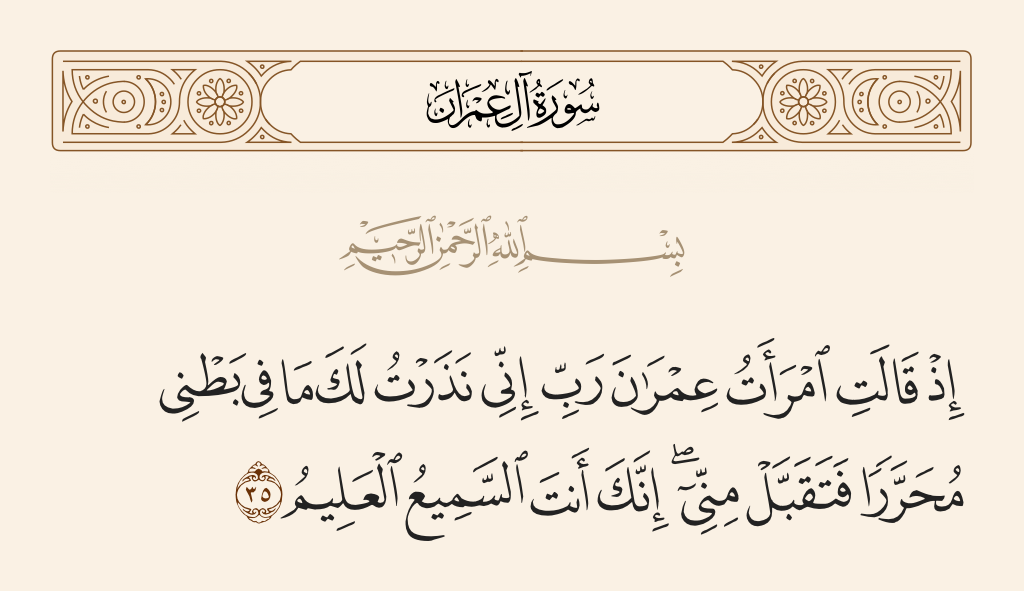 سُورَةُ آلِ عِمْرَان
بِسْمِ ٱللَّهِ ٱلرَّحْمَٰنِ ٱلرَّحِيمِ
إِذْ قَالَتِ ٱمْرَأَتُ عِمْرَٰنَ رَبِّ إِنِّى نَذَرْتُ لَكَ مَا فِى بَطْنِى
مُحَرَّرًا فَتَقَبَّلْ مِنِّىٓ ۖ إِنَّكَ أَنتَ ٱلسَّمِيعُ ٱلْعَلِيمُ ٣٥